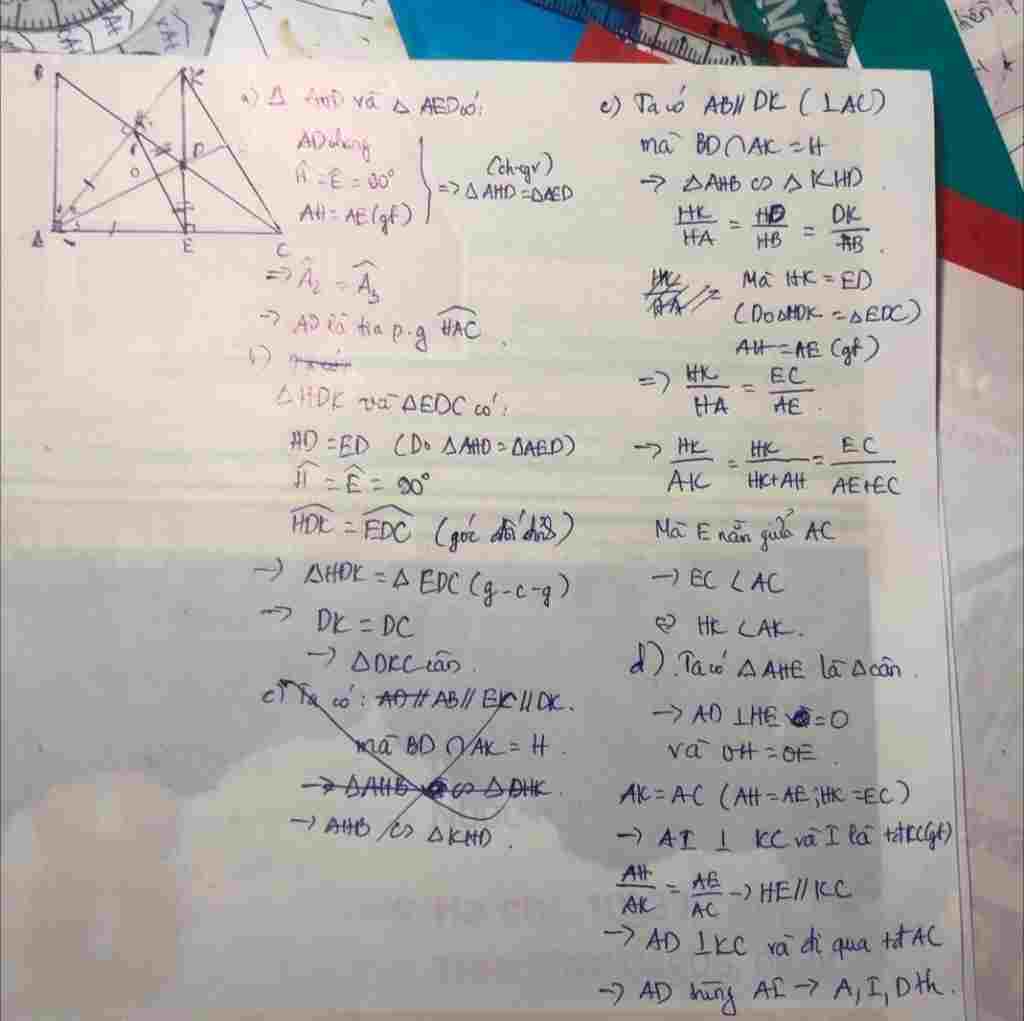 B
K
H
D
O
A
E
C
a) Δ AHD và Δ AED có:
AD chung
Ĥ = Ê = 90°
AH = AE (gt)
(ch-gv)
=> Δ AHD = Δ AED
=> Â₂ = Â₃
-> AD là tia p.g HAC.
b)
Δ HDK và Δ EDC có:
HD = ED (Do Δ AHD = Δ AED)
Ĥ = Ê = 90°
HDK = EDC (góc đối đỉnh)
-> Δ HDK = Δ EDC (g-c-g)
-> DK = DC
-> Δ DKC cân.
c) Ta có: AD // AB // EK // DK.
mà BD ∩ AK = H.
-> Δ AHB ∽ Δ DHK.
-> AHB ∽ Δ KHD.
c) Ta có AB // DK (⊥ AC)
mà BD ∩ AK = H
-> Δ AHB ∽ Δ KHD.
HK/HA = HD/HB = DK/AB.
HK/HA = Mà HK = ED
(Do Δ HDK = Δ EDC)
AH = AE (gt)
=> HK/HA = EC/AE.
-> HK/AK = HK/HK+AH = EC/AE+EC
Mà E nằm giữa AC
-> EC < AC
⇔ HK < AK.
d). Ta có Δ AHE là Δ cân.
-> AD ⊥ HE = O
và OH = OE.
AK = AC (AH = AE; HK = EC)
-> AI ⊥ KC và I là tđ KC (gt)
AH/AK = AE/AC -> HE // KC
-> AD ⊥ KC và đi qua tđ AC
-> AD trùng AI -> A, I, D th.